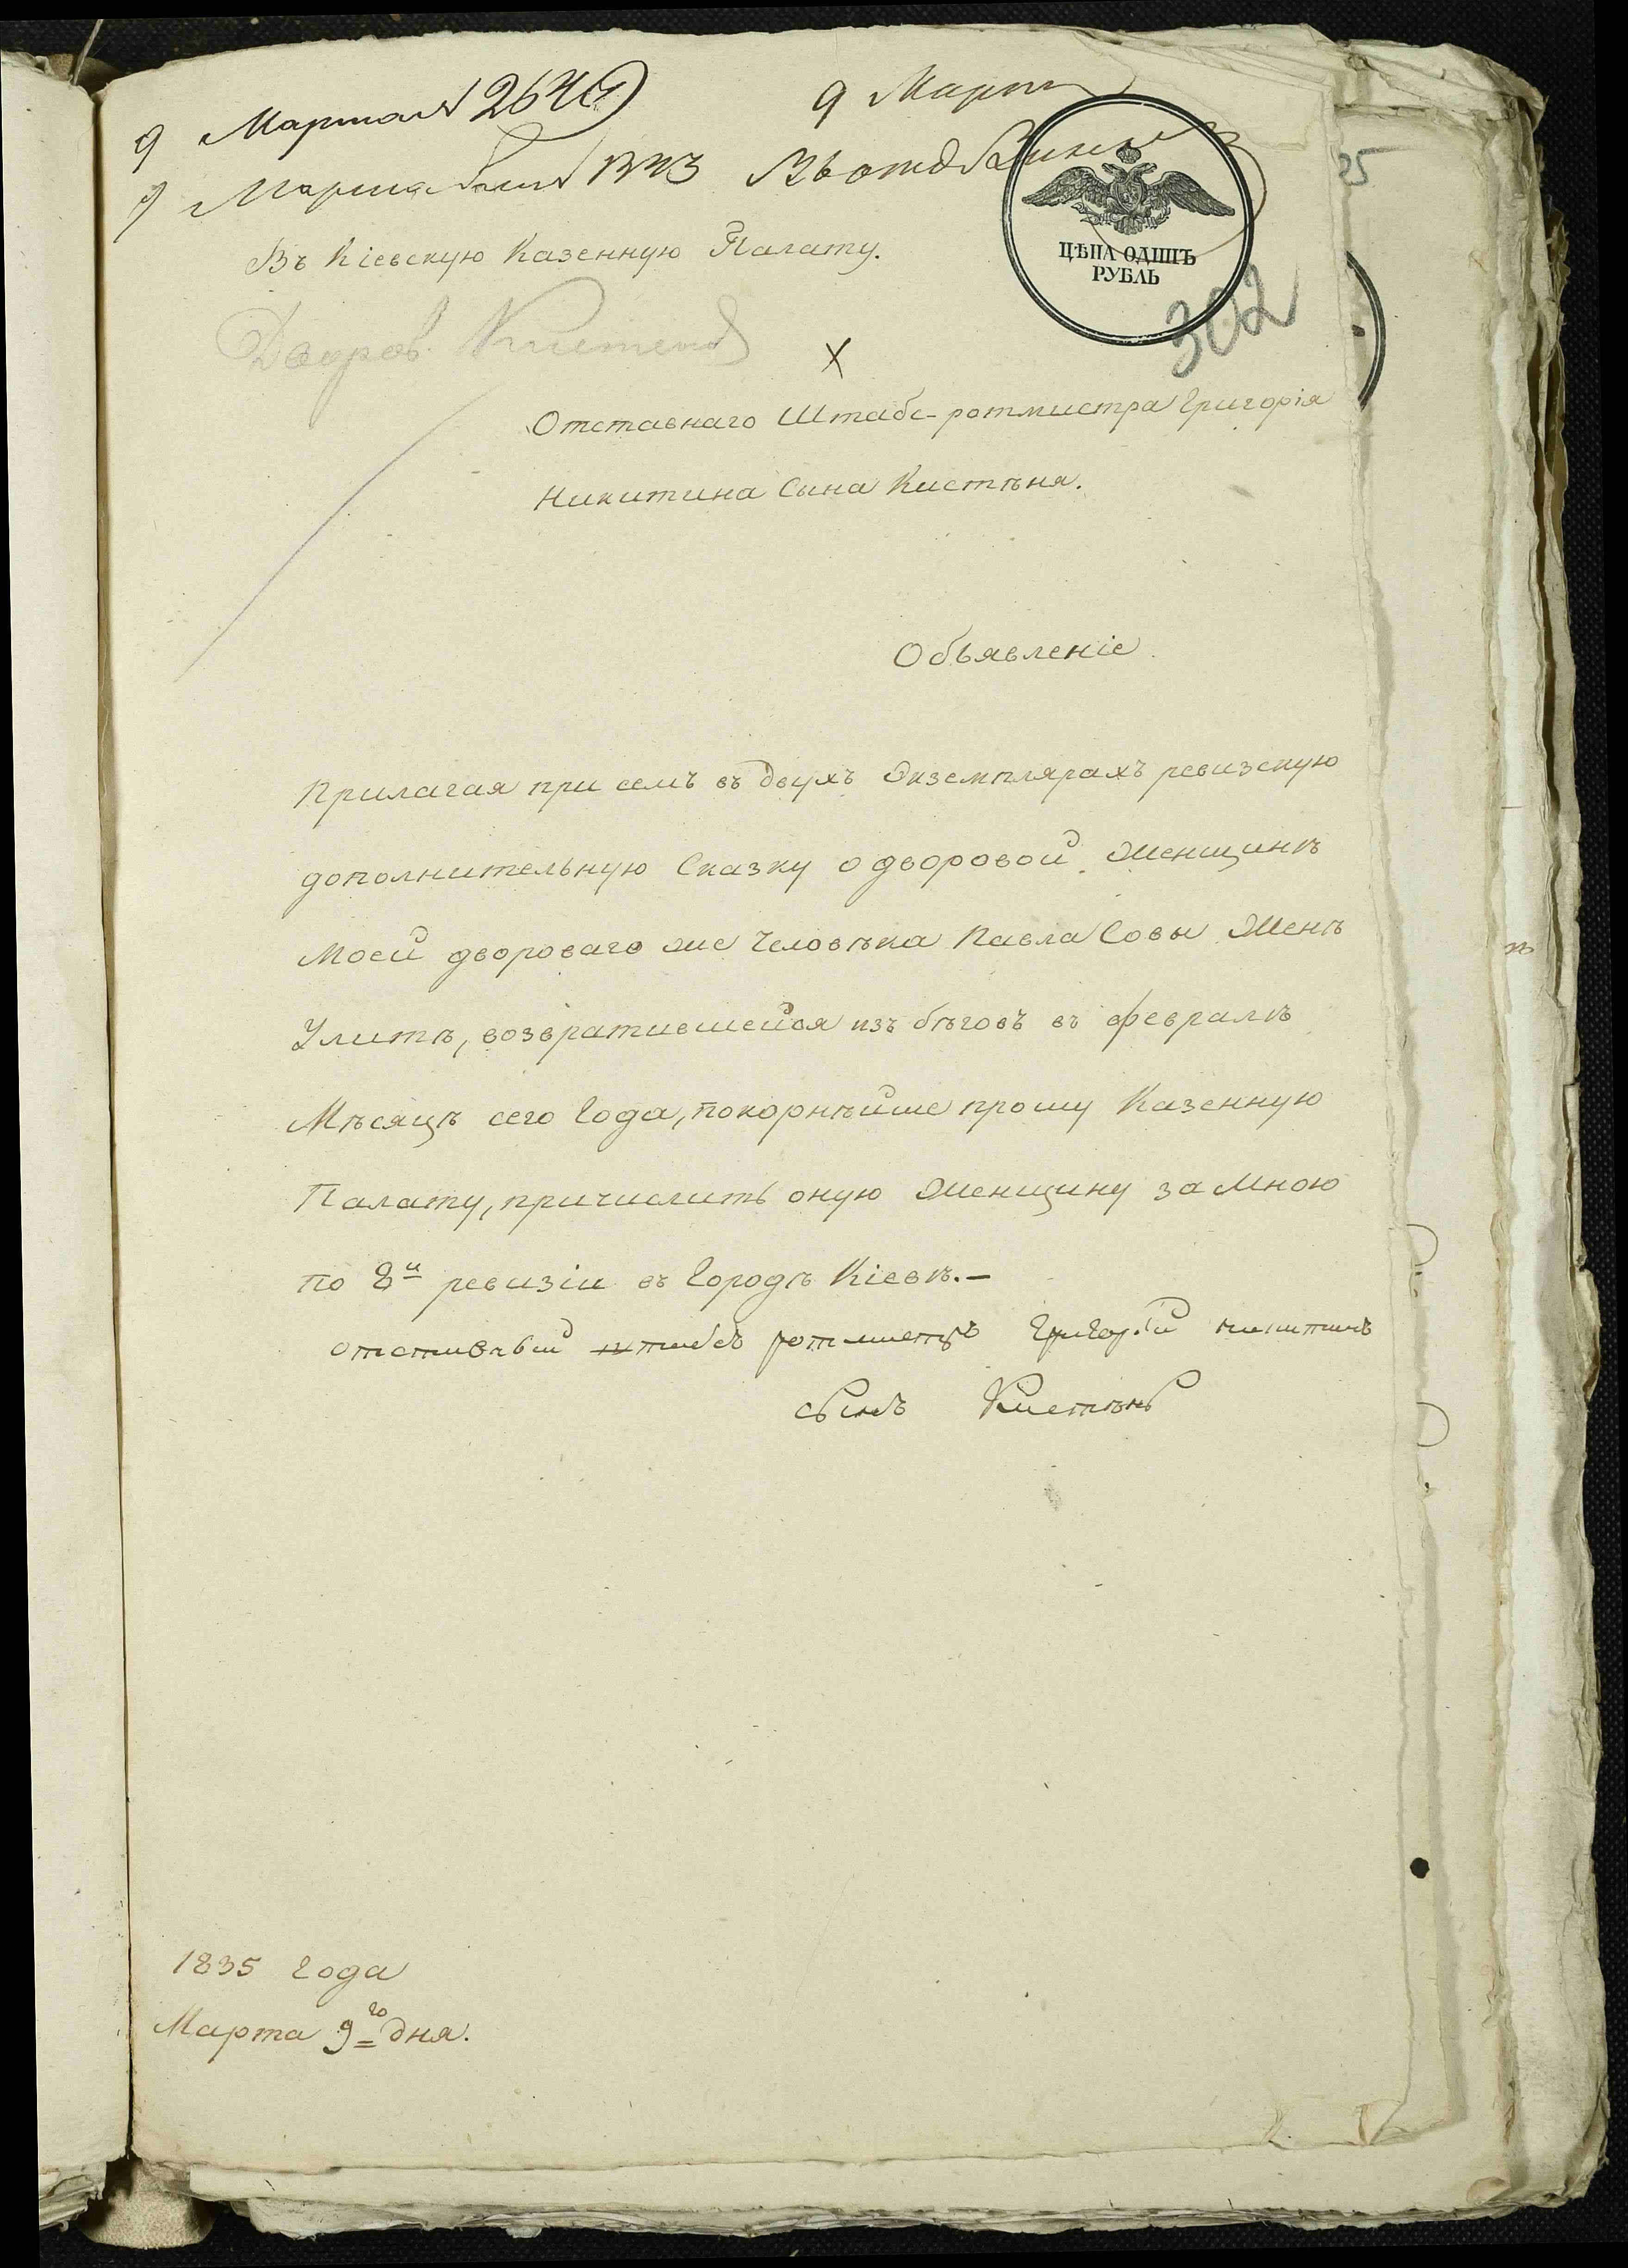 9 Марта № 2649
9 Марта
9 Марта
Въ Кіевскую Казенную Палату.
ЦѢНА ОДИНЪ
РУБЛЬ
302
25
Отставнаго Штабс-ротмистра Григорія
Никитина Сына Кистѣня.
Объявленіе.
Прилагая при семъ въ двухъ Экземплярахъ ревизскую
дополнительную Сказку о дворовой Женщинѣ
Моей двороваго же Человѣка Павла Совы Женѣ
Улитѣ, возвратившейся изъ бѣговъ въ февралѣ
Мѣсяцѣ сего Года, покорнѣйше прошу Казенную
Палату, причислить оную Женщину за Мною
по 8й ревизіи въ Городѣ Кіевѣ.—
отставный штабсъ ротмистръ Григорій никитинъ
сынъ Кистѣнь
1835 Года
Марта 9го дня.